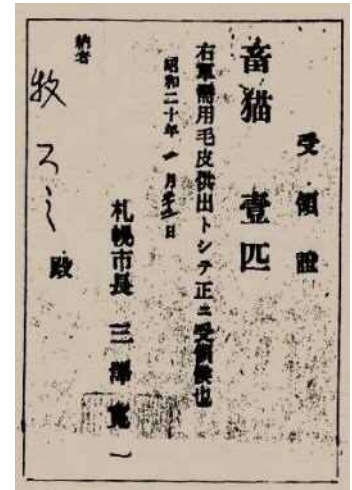 受領證
畜猫 壹匹
右軍需用毛皮供出トシテ正ニ受領候也
昭和二十年 一月 日
札幌市長 三澤寛一
納者
牧スミ 殿